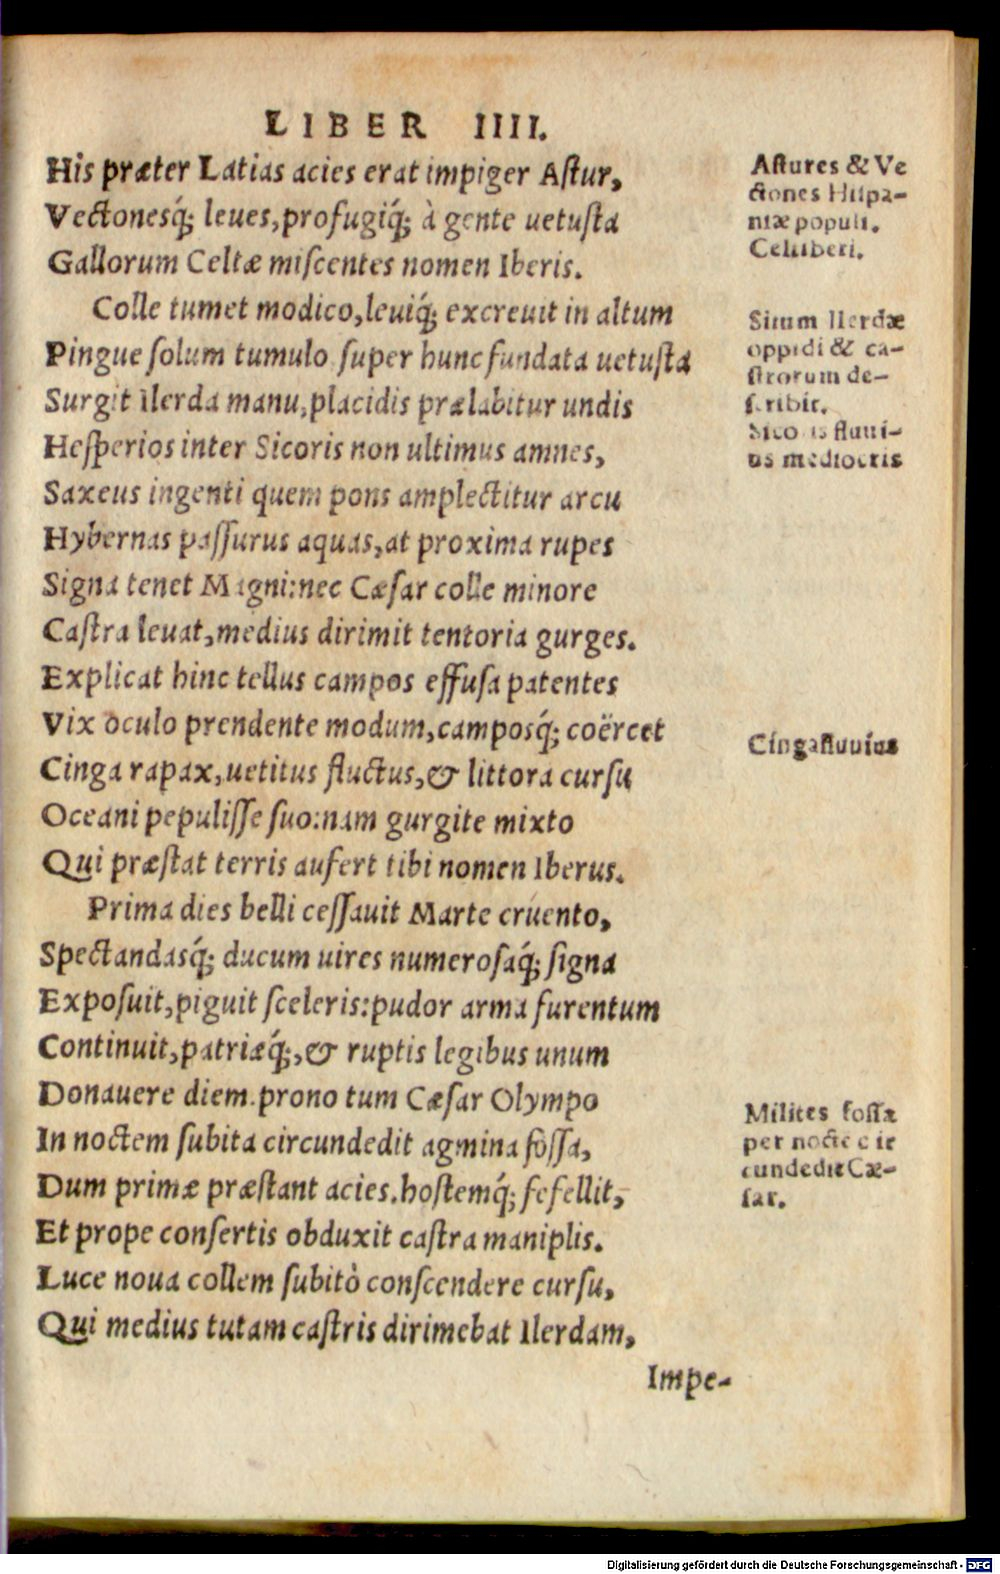 LIBER IIII.
His præter Latias acies erat impiger Aſtur,
Vectonesq́; leues,profugiq́; à gente uetuſta
Gallorum Celtæ miſcentes nomen Iberis.
Colle tumet modico,leuiq́; excreuit in altum
Pingue ſolum tumulo ſuper hunc fundata uetuſta
Surgit Ilerda manu,placidis prælabitur undis
Heſperios inter Sicoris non ultimus amnes,
Saxeus ingenti quem pons amplectitur arcu
Hybernas paſſurus aquas,at proxima rupes
Signa tenet Magni:nec Cæſar colle minore
Caſtra leuat,medius dirimit tentoria gurges.
Explicat hinc tellus campos effuſa patentes
Vix oculo prendente modum,camposq́; coërcet
Cinga rapax,uetitus fluctus,& littora curſu
Oceani pepuliſſe ſuo:nam gurgite mixto
Qui præſtat terris aufert tibi nomen Iberus.
Prima dies belli ceſſauit Marte cruento,
Spectandasq́; ducum uires numeroſaq́; ſigna
Expoſuit,piguit ſceleris:pudor arma furentum
Continuit,patriæq́;,& ruptis legibus unum
Donauere diem.prono tum Cæſar Olympo
In noctem ſubita circundedit agmina foſſa,
Dum primæ præſtant acies.hoſtemq́; fefellit,
Et prope conſertis obduxit caſtra maniplis.
Luce noua collem ſubitò conſcendere curſu,
Qui medius tutam caſtris dirimebat Ilerdam,
Impe-
Aſtures & Ve
ctones Hiſpa-
niæ populi.
Celtiberi.
Situm Ilerdæ
oppidi & ca-
ſtrorum de-
ſcribit.
Sicoris fluui-
us mediocris
Cinga fluuius
Milites foſſa
per nocté cir
cundedit Cæ-
ſar.
Digitalisierung gefördert durch die Deutsche Forschungsgemeinschaft - DFG